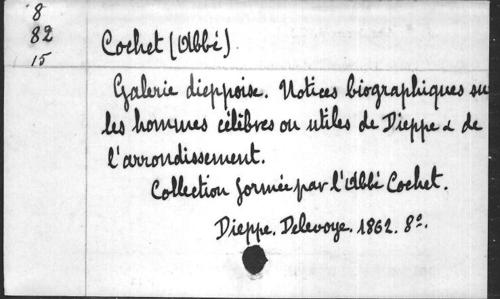 8
82
15
Cochet (Abbé).
Galerie dieppoise. Notices biographiques sur
les hommes célèbres ou utiles de Dieppe & de
l'arrondissement.
Collection formée par l'Abbé Cochet.
Dieppe. Delevoye. 1862. 8º.